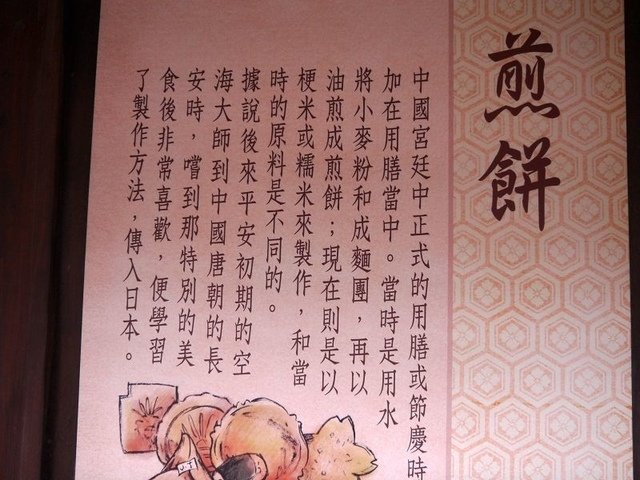 煎餅
中國宮廷中正式的用膳或節慶時
加在用膳當中。當時是用水
將小麥粉和成麵團，再以
油煎成煎餅；現在則是以
梗米或糯米來製作，和當
時的原料是不同的。
據說後來平安初期的空
海大師到中國唐朝的長
安時，嚐到那特別的美
食後非常喜歡，便學習
了製作方法，傳入日本。